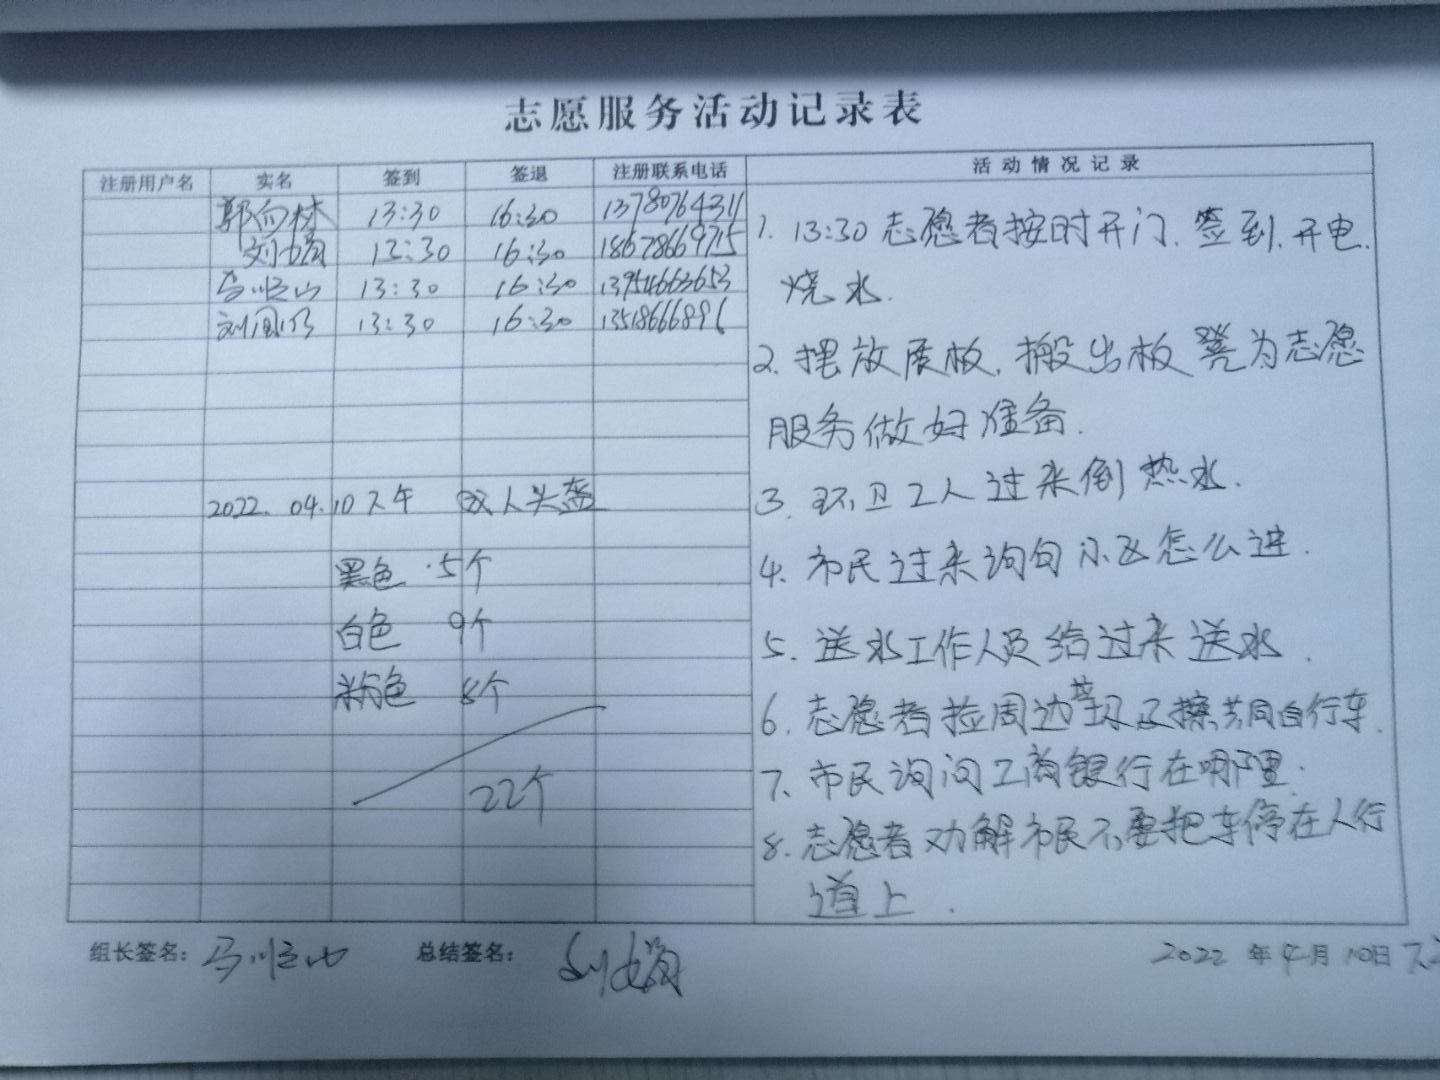 志愿服务活动记录表
注册用户名 实名 签到 签退 注册联系电话 活动情况记录
郭向林 13:30 16:30 13780764311
刘娟 13:30 16:30 18678669715
马恒山 13:30 16:30 13954663653
刘国仍 13:30 16:30 13518666896
2022.04.10下午 成人头盔
黑色 5个
白色 9个
粉色 8个
22个
1. 13:30志愿者按时开门.签到.开电.
烧水.
2. 摆放展板.搬出板凳为志愿
服务做好准备.
3. 环卫工人过来倒热水.
4. 市民过来询问小区怎么进.
5. 送水工作人员给过来送水.
6. 志愿者捡周边垃圾及擦共同自行车.
7. 市民询问工商银行在哪里.
8. 志愿者劝解市民不要把车停在人行
道上.
组长签名: 马恒山 总结签名: 刘娟 2022年4月10日下